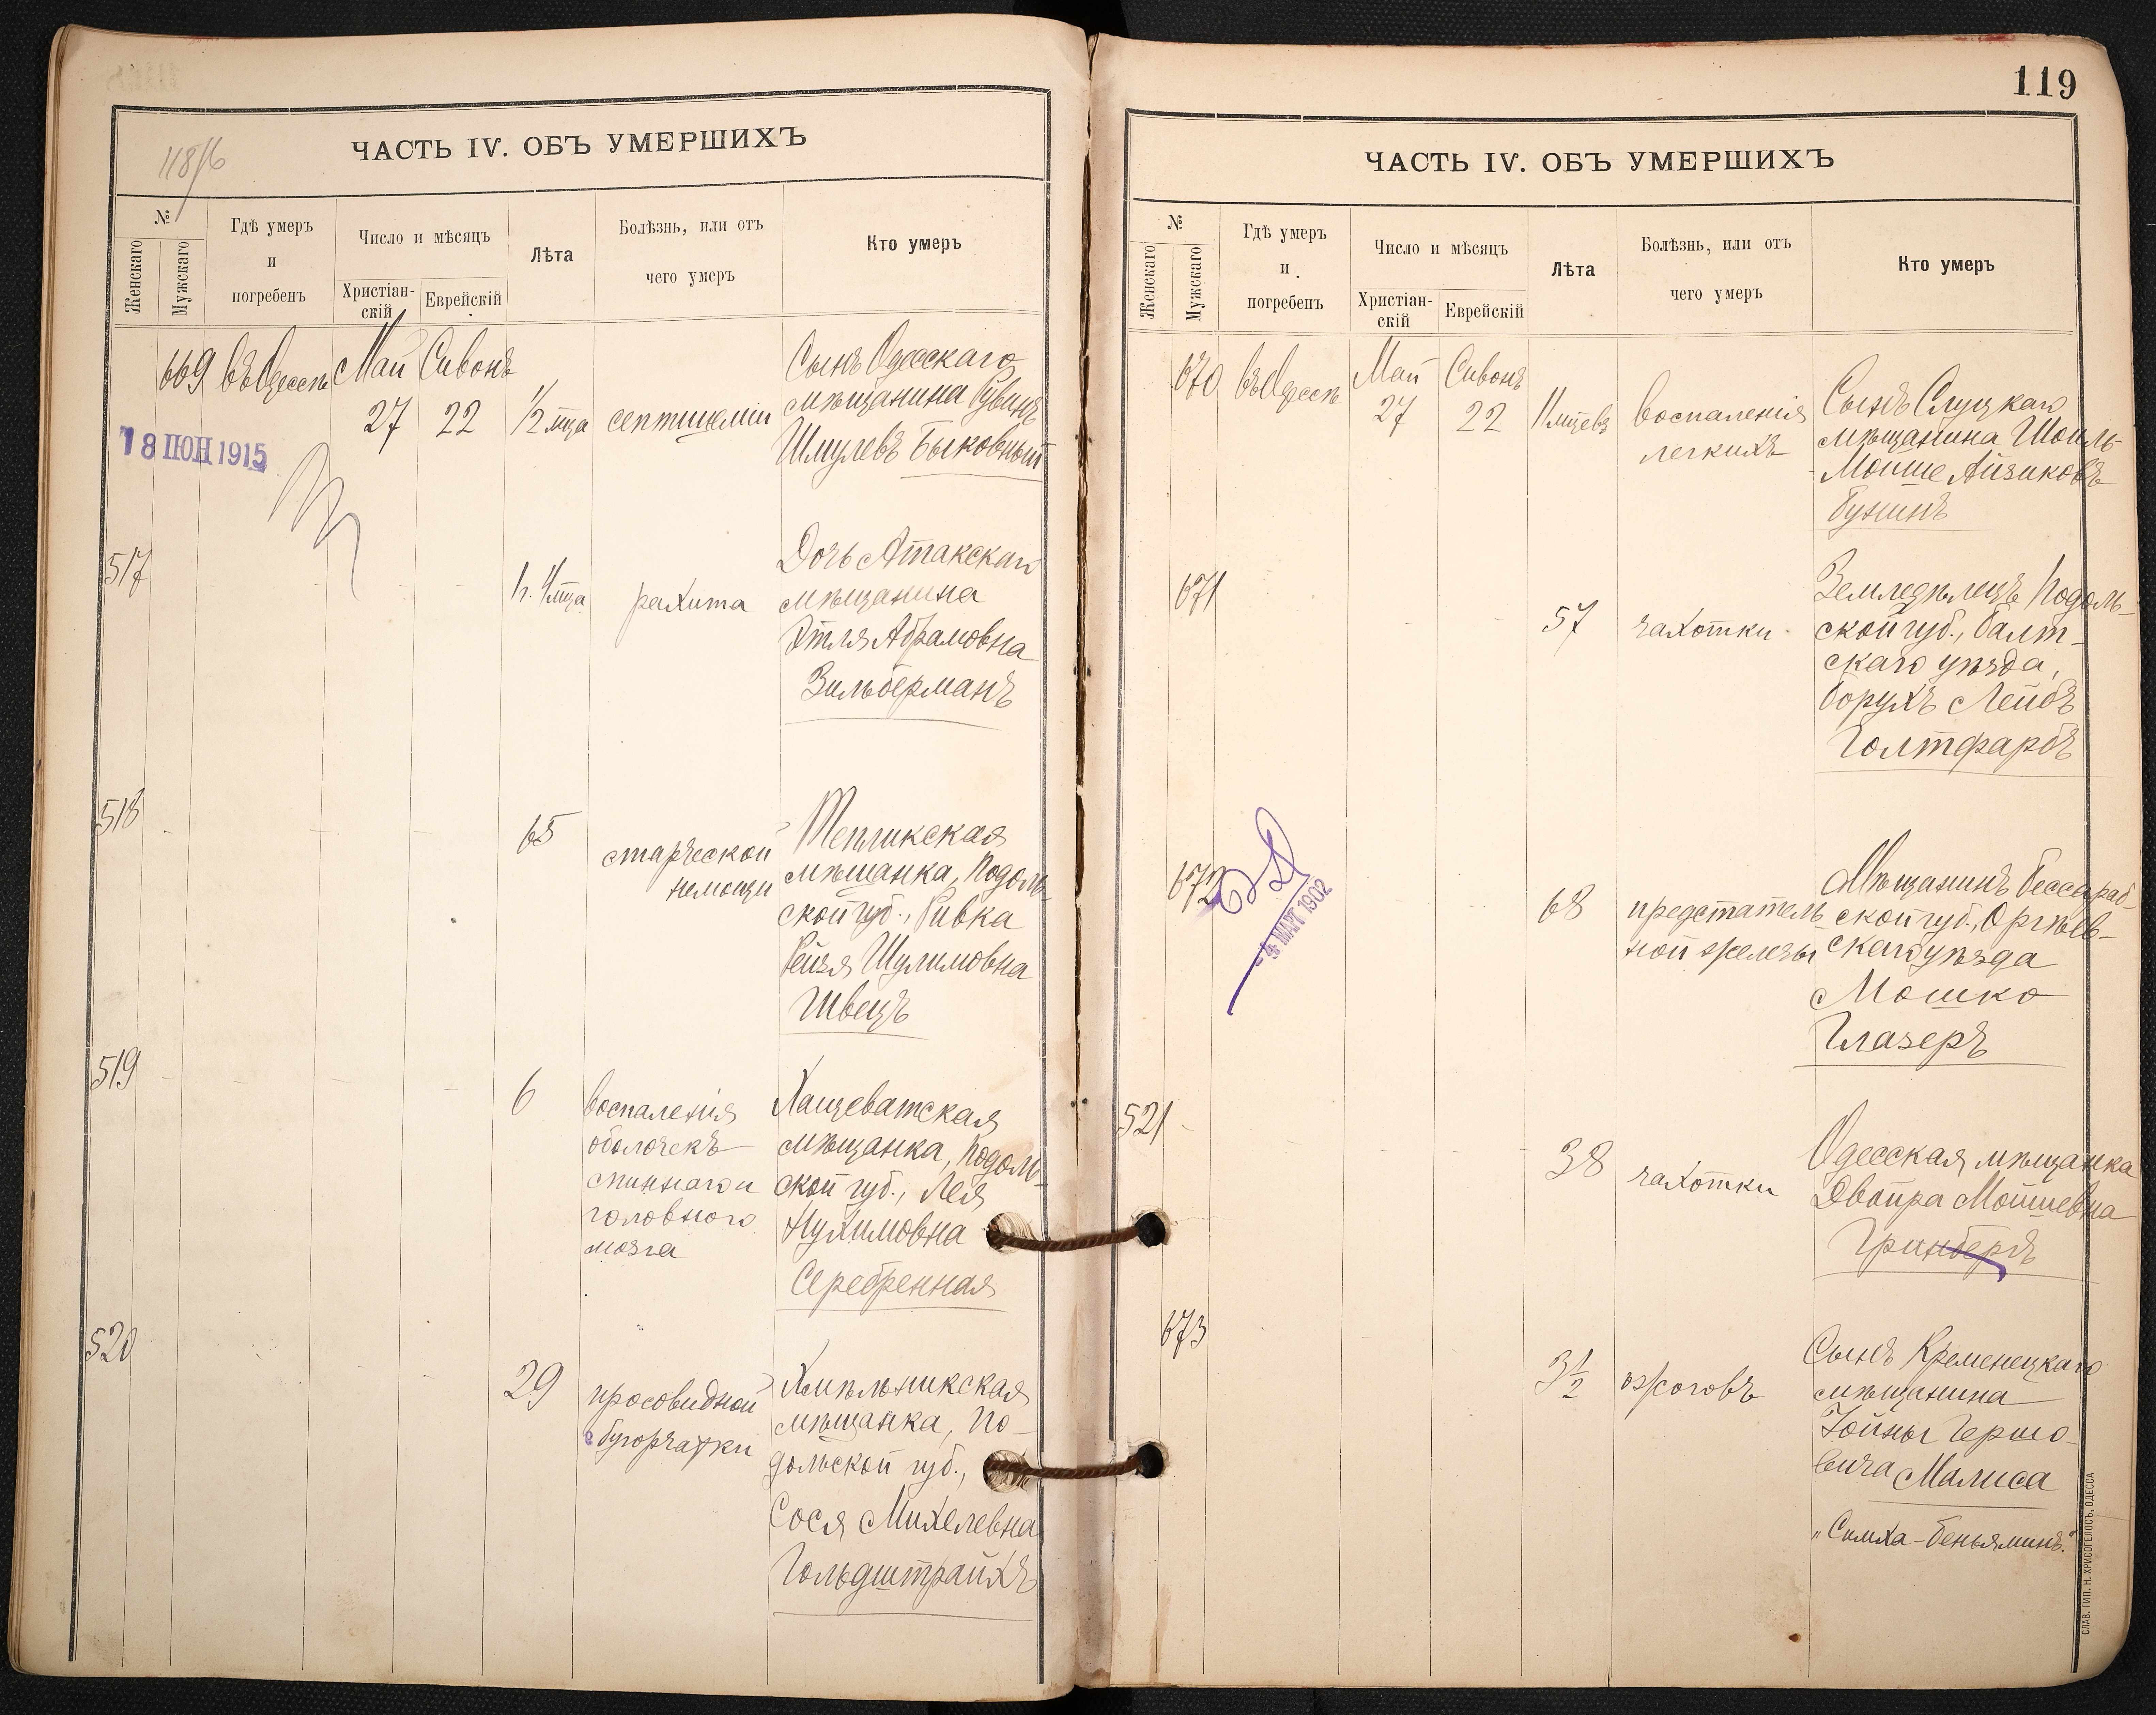 118/б
ЧАСТЬ IV. ОБЪ УМЕРШИХЪ
№
Женскаго
Мужскаго
Гдѣ умеръ
и
погребенъ
Число и мѣсяцъ
Христіан-
скій
Еврейскій
Лѣта
Болѣзнь, или отъ
чего умеръ
Кто умеръ
669 въ Одессѣ Май Сивонъ
27 22 1/2 мца септицеміи
Сынъ Одесскаго
мѣщанина Рувинъ
Шмулевъ Быковный
18 ІЮН 1915
517
1 г. 1 мца рахита
Дочь Атакскаго
мѣщанина
Этля Абрамовна
Зильберманъ
518
65
старческой
немощи
Тепликская
мѣщанка, Подоль-
ской губ., Ривка
Рейзя Шулимовна
Швецъ
519
6
воспаленія
оболочекъ
спиннаго и
головного
мозга
Хащеватская
мѣщанка, Подоль-
ской губ., Лея
Нухимовна
Серебренная
520
29
просовидной
бугорчатки
Хмѣльникская
мѣщанка, По-
дольской губ.,
Сося Михелевна
Гольдштрайхъ
119
ЧАСТЬ IV. ОБЪ УМЕРШИХЪ
№
Женскаго
Мужскаго
Гдѣ умеръ
и
погребенъ
Число и мѣсяцъ
Христіан-
скій
Еврейскій
Лѣта
Болѣзнь, или отъ
чего умеръ
Кто умеръ
670 въ Одессѣ Май Сивонъ
27 22 11 мцевъ
воспаленія
легкихъ
Сынъ Слуцкаго
мѣщанина Шоиль-
Мойше Айзиковъ
Бунинъ
671
57 чахотки
Земледѣлецъ Подоль-
ской губ., Балт-
скаго уѣзда,
Борухъ Лейбъ
Голтфарбъ
672
- 4 МАРТ 1902
68
предстатель-
ной железы
Мѣщанинъ Бессараб-
ской губ., Оргѣев-
скаго уѣзда
Мошко
Глазеръ
521
38 чахотки
Одесская мѣщанка
Двойра Мойшевна
Гринбергъ
673
3 1/2 ожоговъ
Сынъ Кременецкаго
мѣщанина
Іойны Гершо-
вича Малиса
"Симха-Беньяминъ."
СЛАВ. ТИП. Н. ХРИСОГЕЛОСЪ, ОДЕССА